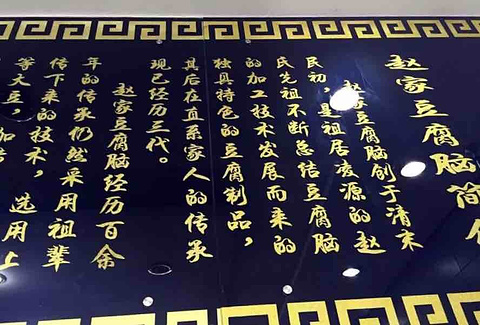 赵家豆腐脑简介
赵家豆腐脑创于清末
民初，是祖居凌源的赵
氏先祖不断总结豆腐脑
的加工技术发展而来的
独具特色的豆腐制品，
其后在直系家人的传承
现已经历三代。
赵家豆腐脑经历百余
年的传承仍然采用祖辈
传下来的技术，选用上
等大豆，加